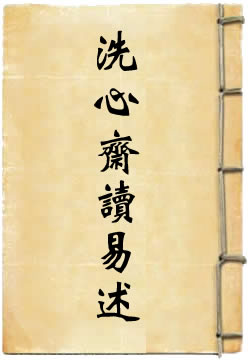 洗心齋讀易述